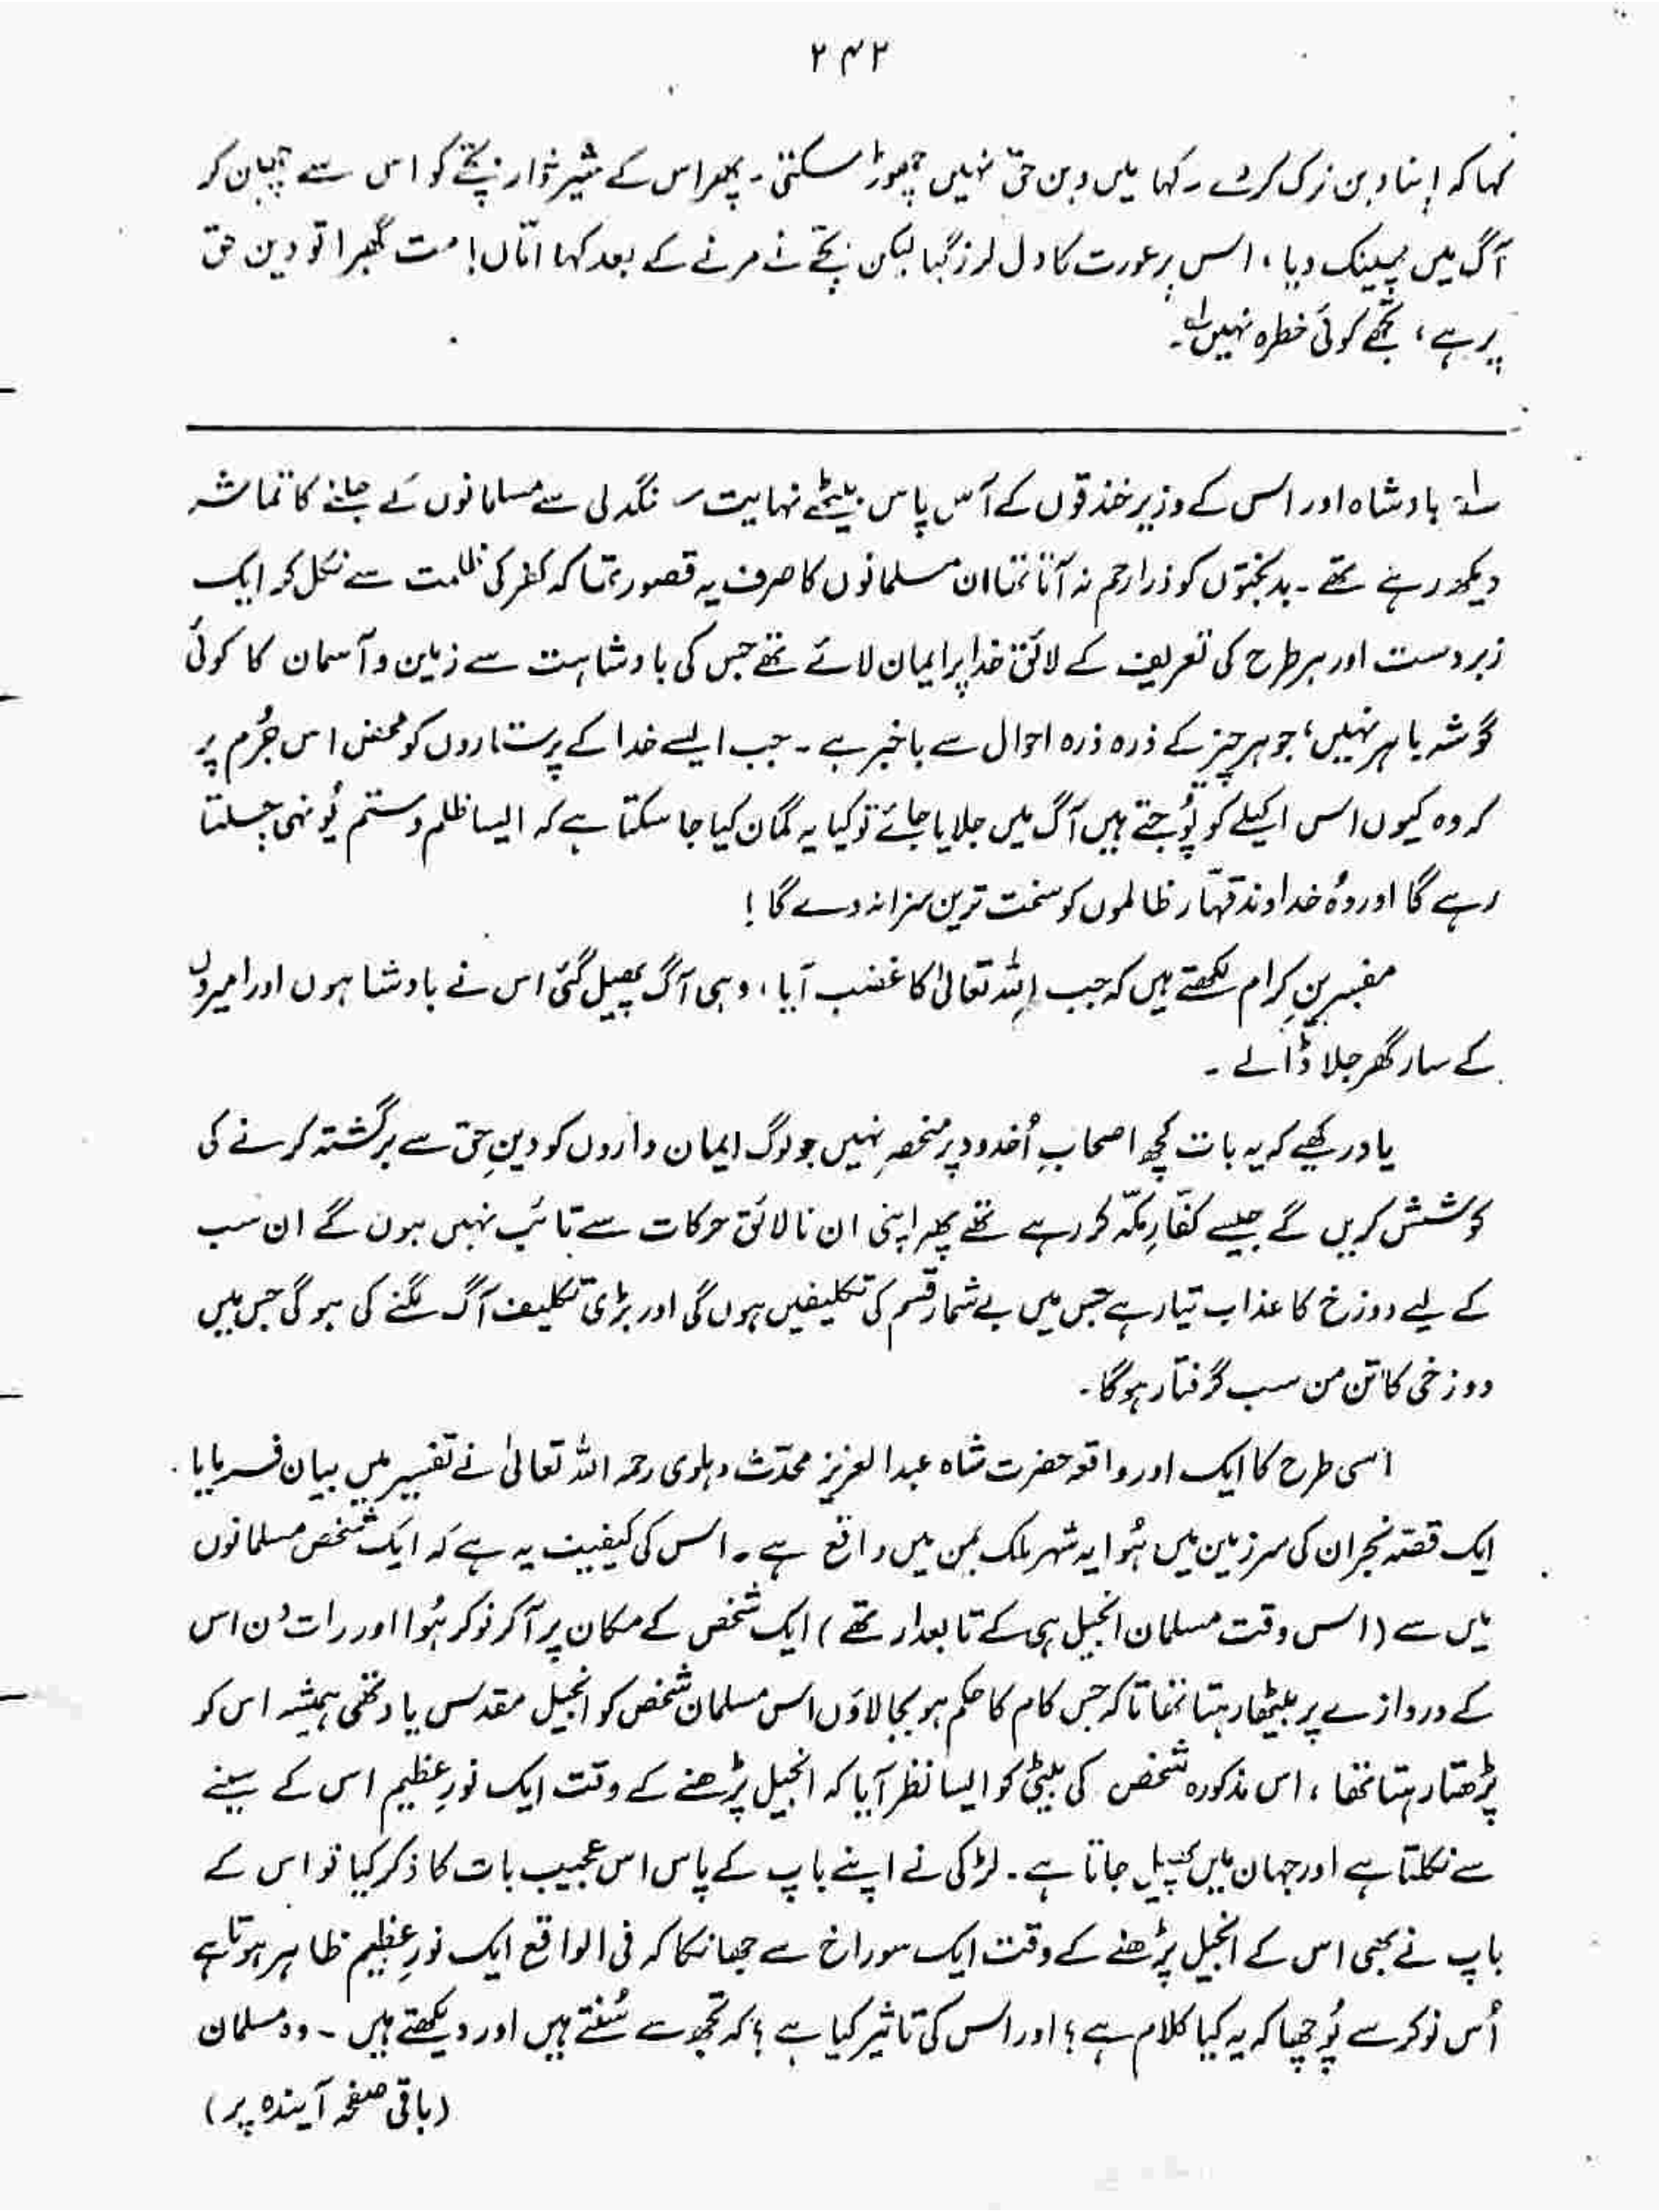 ۲۴۲
کہا کہ اپنا دین ترک کر دے۔ کہا میں دین حق نہیں چھوڑ سکتی۔ پھر اس کے شیر خوار بچے کو اس سے چھین کر
آگ میں پھینک دیا، اس پر عورت کا دل لرز گیا لیکن بچے نے مرنے کے بعد کہا امّاں! مت گھبرا تو دین حق
پر ہے، تجھے کوئی خطرہ نہیں لے۔
لے بادشاہ اور اس کے وزیر خندقوں کے آس پاس بیٹھے نہایت سنگدلی سے مسلمانوں کے جلنے کا تماشہ
دیکھ رہے تھے۔ بدبختوں کو ذرا رحم نہ آتا تھا ان مسلمانوں کا صرف یہ قصور تھا کہ کفر کی ظلمت سے نکل کر ایک
زبردست اور ہر طرح کی تعریف کے لائق خدا پر ایمان لائے تھے جس کی بادشاہت سے زمین و آسمان کا کوئی
گوشہ باہر نہیں، جو ہر چیز کے ذرہ ذرہ احوال سے باخبر ہے۔ جب ایسے خدا کے پرستاروں کو محض اس جُرم پر
کہ وہ کیوں اس اکیلے کو پُوجتے ہیں آگ میں جلایا جائے تو کیا یہ گمان کیا جا سکتا ہے کہ ایسا ظلم و ستم یُونہی چلتا
رہے گا اور وُہ خداوند قہّار ظالموں کو سخت ترین سزا نہ دے گا!
مفسرینِ کرام لکھتے ہیں کہ جب اللہ تعالیٰ کا غضب آیا، وہی آگ پھیل گئی اس نے بادشاہوں اور امیروں
کے سار گھر جلا ڈالے۔
یاد رکھیے کہ یہ بات کچھ اصحابِ اُخدود پر منحصر نہیں جو لوگ ایمان داروں کو دینِ حق سے برگشتہ کرنے کی
کوشش کریں گے جیسے کفّارِ مکّہ کر رہے تھے پھر اپنی ان نالائق حرکات سے تائب نہیں ہوں گے ان سب
کے لیے دوزخ کا عذاب تیار ہے جس میں بے شمار قسم کی تکلیفیں ہوں گی اور بڑی تکلیف آگ لگنے کی ہو گی جس میں
دوزخی کا تن من سب گرفتار ہو گا۔
اسی طرح کا ایک اور واقعہ حضرت شاہ عبد العزیز محدّث دہلوی رحمہ اللہ تعالیٰ نے تفسیر میں بیان فرمایا۔
ایک قصّہ نجران کی سرزمین میں ہُوا یہ شہر ملک یمن میں واقع ہے۔ اس کی کیفیت یہ ہے کہ ایک شخص مسلمانوں
میں سے (اس وقت مسلمان انجیل ہی کے تابعدار تھے) ایک شخص کے مکان پر آ کر نوکر ہُوا اور رات دن اس
کے دروازے پر بیٹھا رہتا تھا تاکہ جس کام کا حکم ہو بجا لاؤں اس مسلمان شخص کو انجیل مقدس یاد تھی ہمیشہ اس کو
پڑھتا رہتا تھا، اس مذکورہ شخص کی بیٹی کو ایسا نظر آیا کہ انجیل پڑھنے کے وقت ایک نورِ عظیم اس کے سینے
سے نکلتا ہے اور جہان میں پھیل جاتا ہے۔ لڑکی نے اپنے باپ کے پاس اس عجیب بات کا ذکر کیا تو اس کے
باپ نے بھی اس کے انجیل پڑھنے کے وقت ایک سوراخ سے جھانکا کہ فی الواقع ایک نورِ عظیم ظاہر ہوتا ہے
اُس نوکر سے پُوچھا کہ یہ کیا کلام ہے؟ اور اس کی تاثیر کیا ہے؟ کہ تجھ سے سُنتے ہیں اور دیکھتے ہیں۔ وہ مسلمان
(باقی صفحہ آیندہ پر)